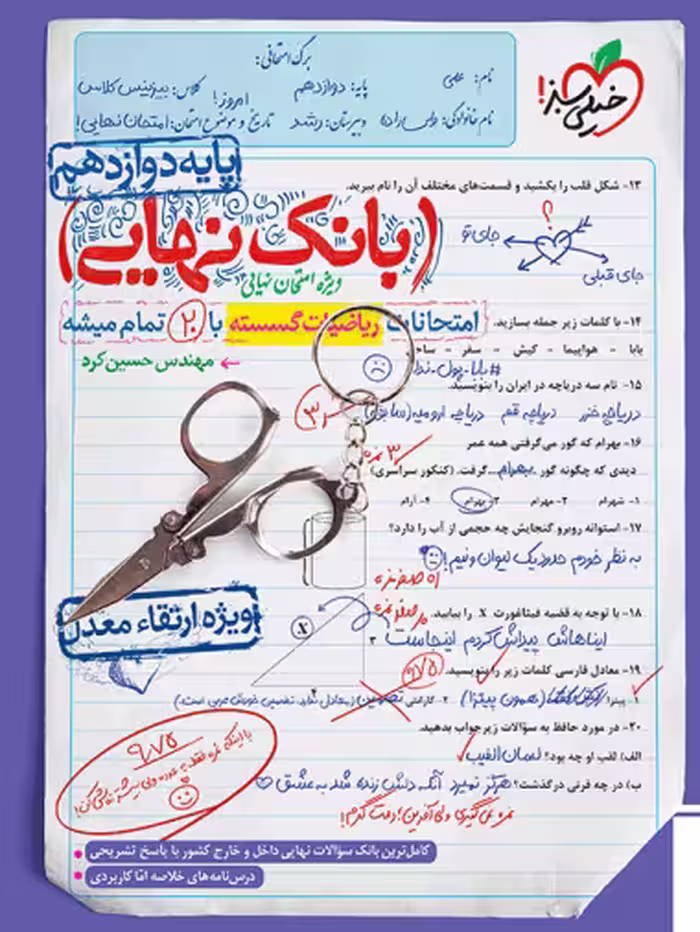 برگ امتحانی:
نام:
پایه: دوازدهم
کلاس: بیزینس کلاس
نام خانوادگی:
دبیرستان: رشد
تاریخ و موضوع امتحان: امتحان نهایی!
امروز!
خیلی سبز!
پایه دوازدهم
۱۳- شکل قلب را بکشید و قسمت‌های مختلف آن را نام ببرید.
(بانک نهایی)
؟
جای تو
جای قبلی
ویژه امتحان نهایی
۱۴- با کلمات زیر جمله بسازید.
امتحانات ریاضیات گسسته با ۲۰ تمام میشه
بابا - هواپیما - کیش - سفر -
مهندس حسین کرد
#بابا-پول-
۱۵- نام سه دریاچه در ایران را بنویسید.
دریاچه خزر دریاچه قم دریاچه ارومیه (سابق)
۱۶- بهرام که گور می‌گرفتی همه عمر
۳ نمره
دیدی که چگونه گور بهرام گرفت. (کنکور سراسری)
۱- شهرام ۲- مهرام ۳- بهرام ۴- آرام
۱۷- استوانه روبرو گنجایش چه حجمی از آب را دارد؟
به نظر خودم حدود یک لیوان و نیم!
ویژه ارتقاء معدل
۱۸- با توجه به قضیه فیثاغورث X را بیابید.
X
۳
۴
ایناهاش پیداش کردم اینجاست
۱۹- معادل فارسی کلمات زیر را بنویسید.
۹/۷۵
۱- پیتزا (همون پیتزا) ۲- گارانتی
۲۰- در مورد حافظ به سؤالات زیر جواب بدهید.
الف) لقب او چه بود؟ لسان الغیب
۹/۷۵
ب) در چه قرنی درگذشت؟ هرگز نمیرد آنکه دلش زنده شد به عشق
نمره نمی‌گیری ولی آفرین؛ دمت گرم!
کامل‌ترین بانک سؤالات نهایی داخل و خارج کشور با پاسخ تشریحی
درس‌نامه‌های خلاصه امّا کاربردی